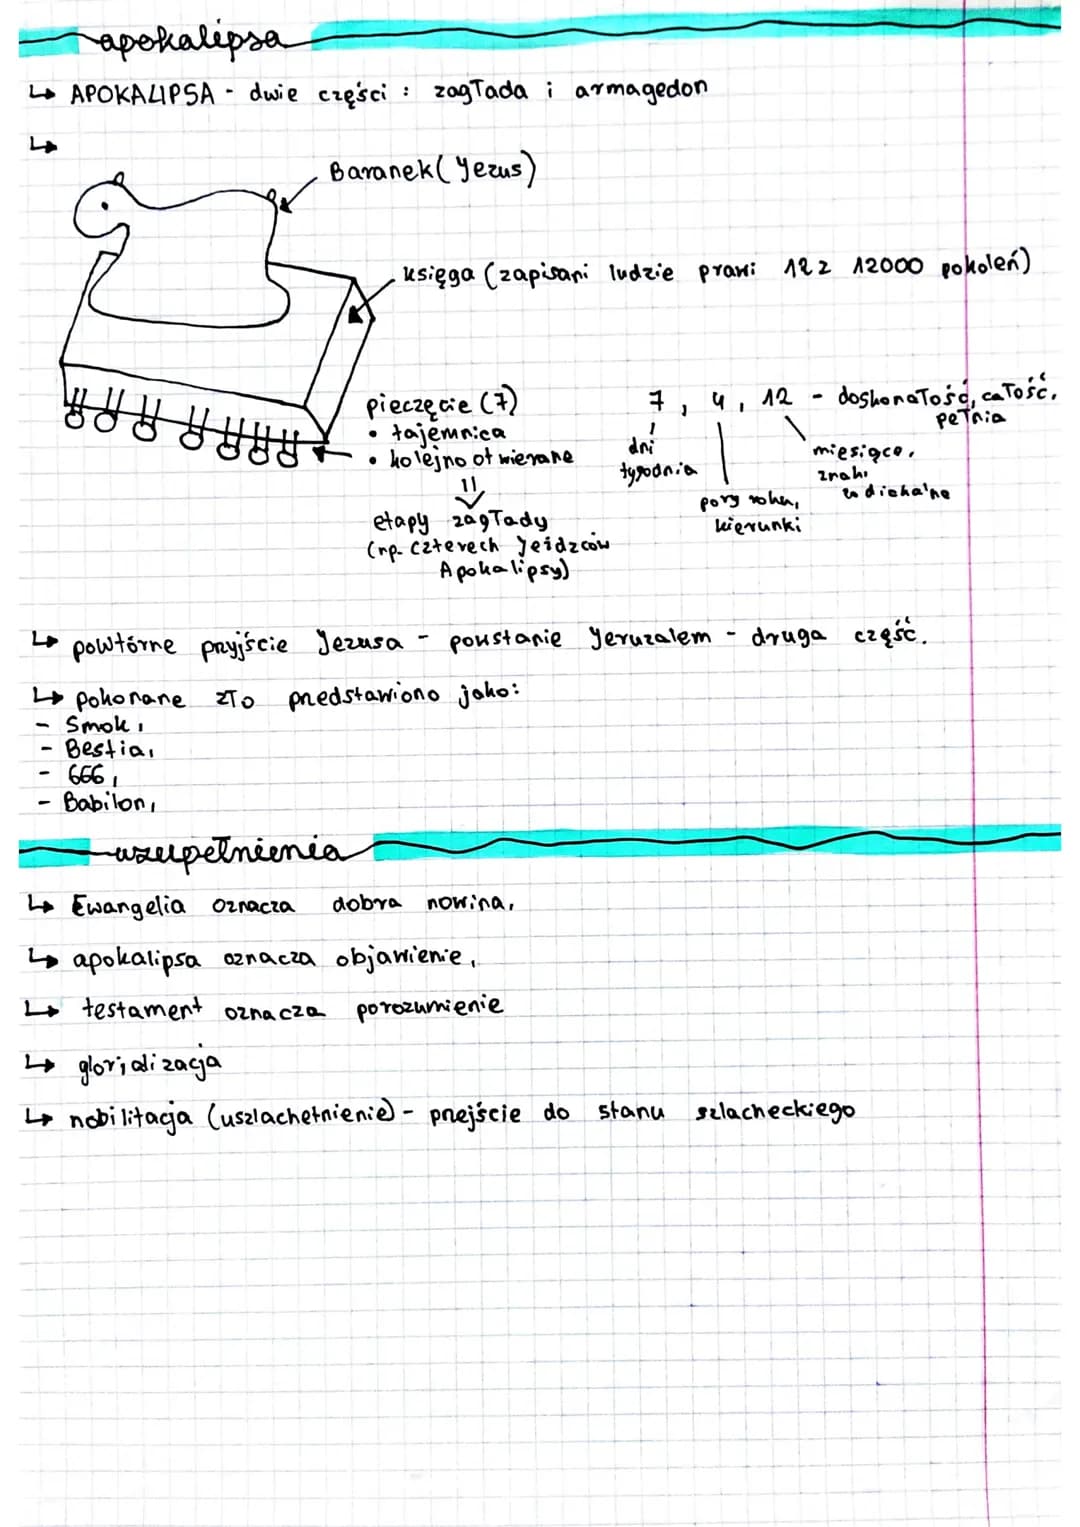 apokalipsa
↳ APOKALIPSA - dwie części : zagłada i armagedon
↳
Baranek (Jezus)
księga (zapisani ludzie prawi 12 z 12000 pokoleń)
pieczęcie (7)
• tajemnica
• kolejno otwierane
etapy zagłady
(np. czterech Jeźdzców
Apokalipsy)
7, 4, 12 - doskonałość, całość,
pełnia
dni
tygodnia
pory roku,
kierunki
miesiące,
znaki
zodiakalne
↳ powtórne przyjście Jezusa - powstanie Jeruzalem - druga część.
↳ pokonane zło przedstawiono jako:
- Smok,
- Bestia,
- 666,
- Babilon,
uzupełnienia
↳ Ewangelia oznacza dobra nowina,
↳ apokalipsa oznacza objawienie,
↳ testament oznacza porozumienie
↳ glorjalizacja
↳ nobilitacja (uszlachetnienie) - przejście do stanu szlacheckiego